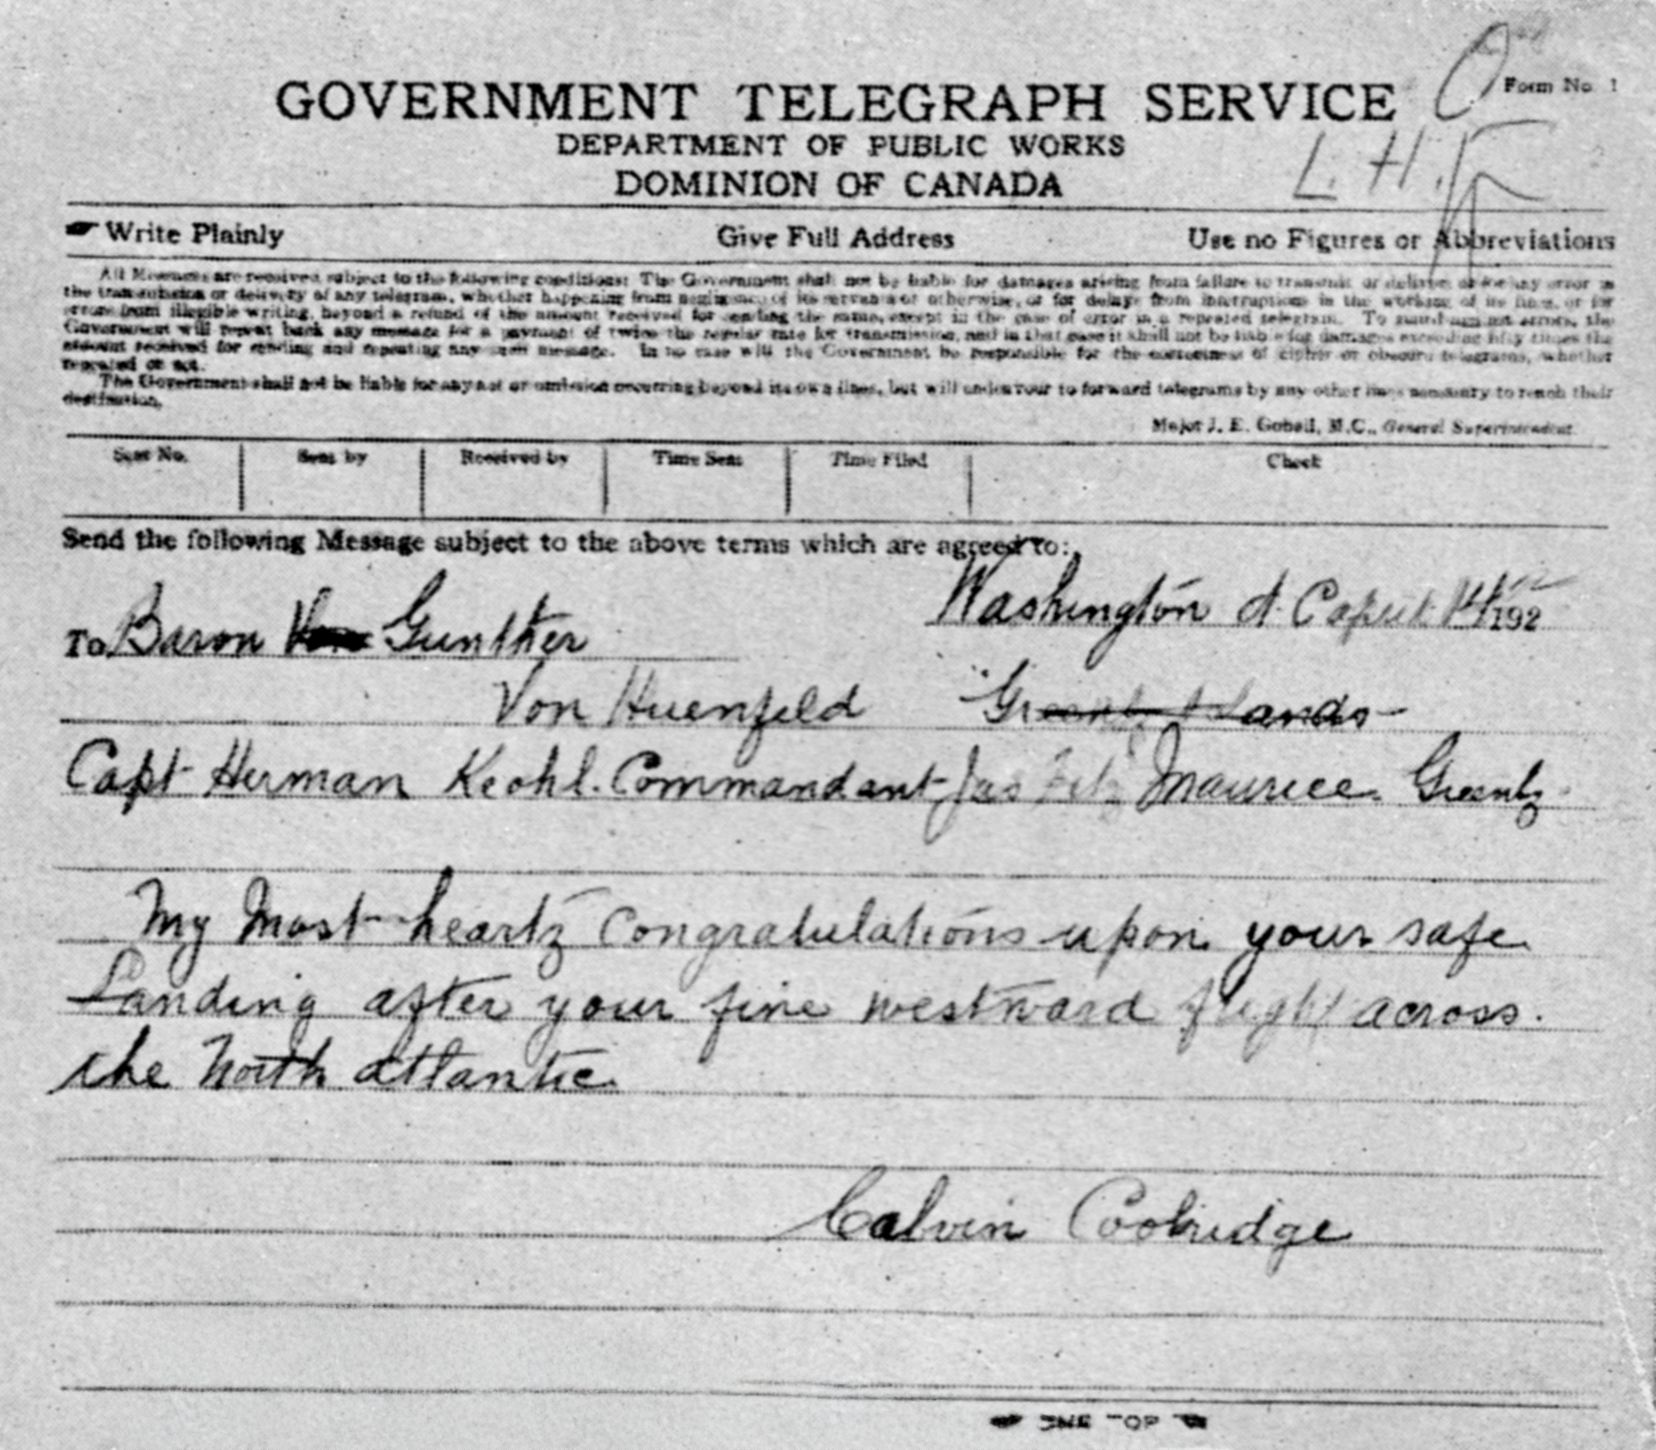 Form No. 1
GOVERNMENT TELEGRAPH SERVICE
DEPARTMENT OF PUBLIC WORKS
DOMINION OF CANADA
L. H.
Write Plainly Give Full Address Use no Figures or Abbreviations
All Messages are received subject to the following conditions: The Government shall not be liable for damages arising from failure to transmit or deliver, or for any error in
the transmission or delivery of any telegram, whether happening from negligence of its servants or otherwise, or for delays from interruptions in the working of its lines, or for
errors from illegible writing, beyond a refund of the amount received for sending the same, except in the case of error in a repeated telegram. To guard against errors, the
Government will repeat back any message for a payment of twice the regular rate for transmission, and in that case it shall not be liable for damages exceeding fifty times the
amount received for sending and repeating any such message. In no case will the Government be responsible for the correctness of cipher or obscure telegrams, whether
repeated or not.
The Government shall not be liable for any act or omission occurring beyond its own lines, but will endeavour to forward telegrams by any other lines necessary to reach their
destination.
Major J. E. Gobeil, M.C., General Superintendent.
Sent No. Sent by Received by Time Sent Time Filed Check
Send the following Message subject to the above terms which are agreed to:
Washington 192
To Baron Von Gunther
Von Huenfeld
Capt Herman Keohl. Commandant Jas Fitz Maurice. Greenly
My Most hearty Congratulations upon your safe
Landing after your fine westward flight across.
the North atlantic
Calvin Coolridge